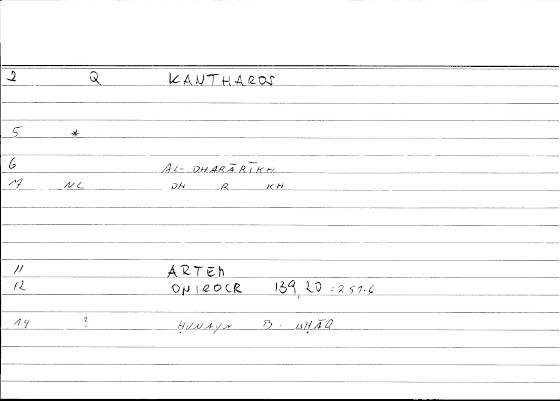 2 Q KANTHAROS
5 *
6 AL-DHARĀRĪKH
7 NL DH R KH
11 ARTEM
12 ONIROCR 139,20 = 257.6
14 ? ḤUNAYN B. ISḤĀQ